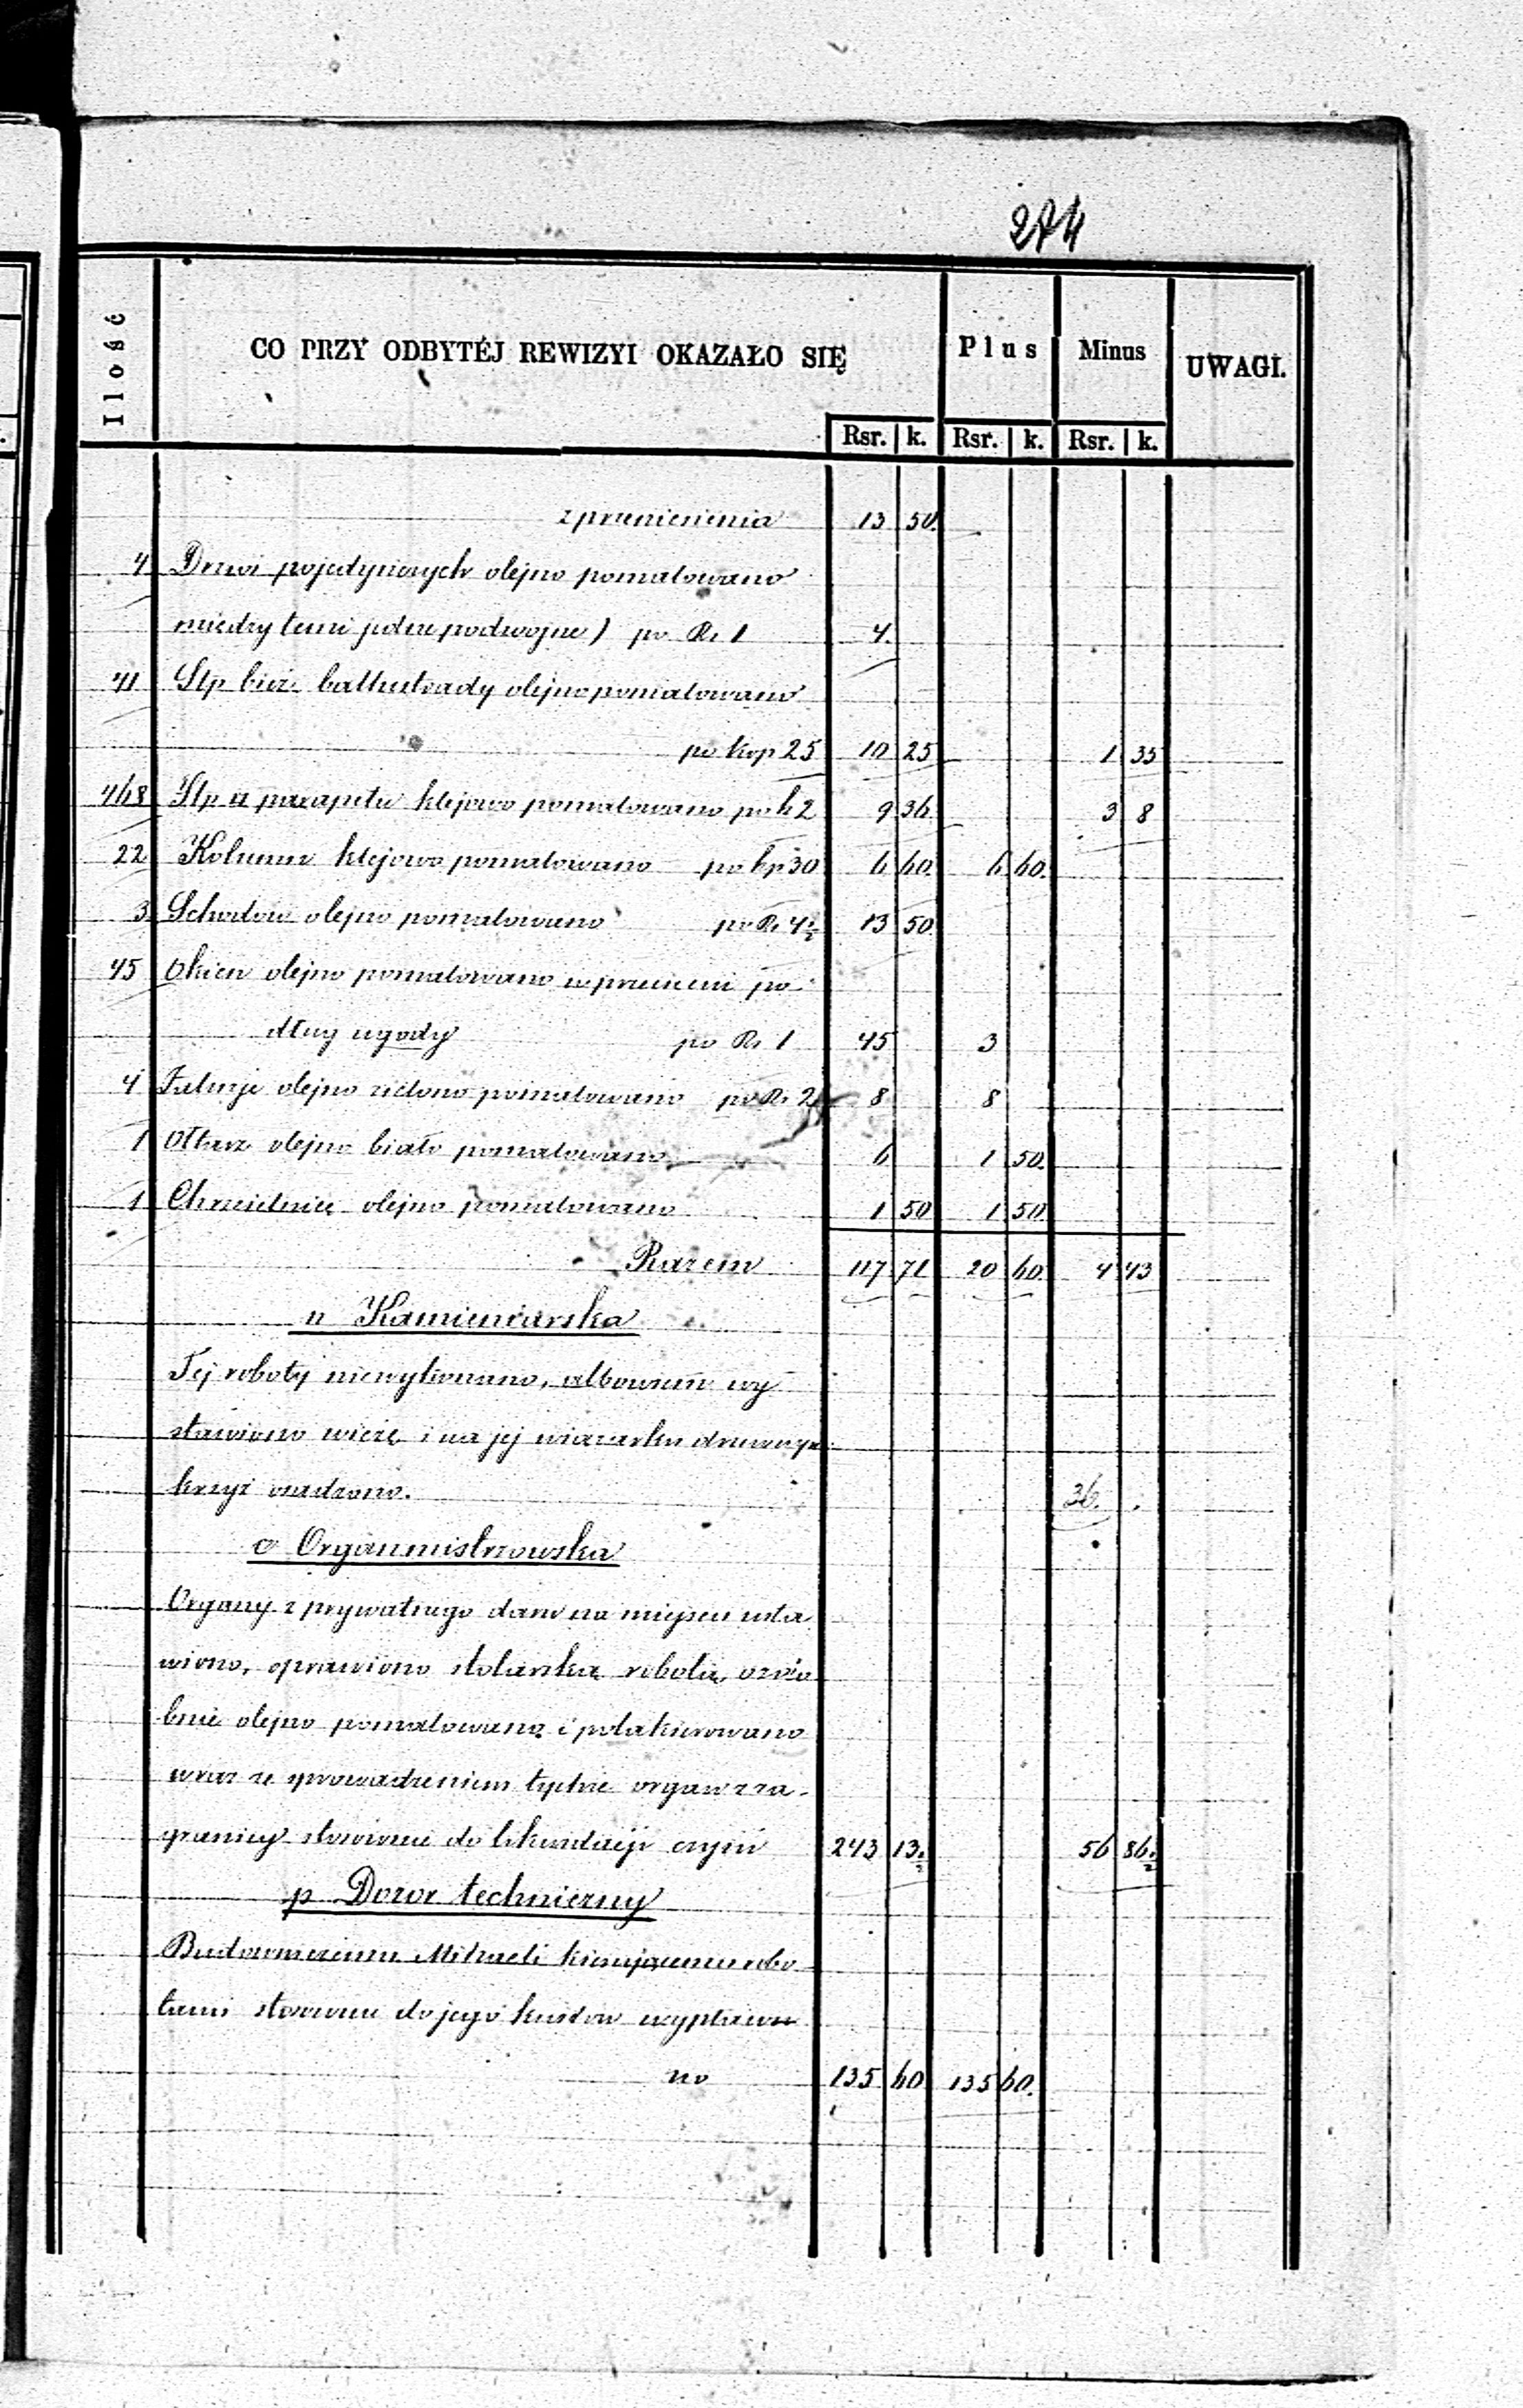 274
Ilość CO PRZY ODBYTÉJ REWIZYI OKAZAŁO SIĘ Plus Minus UWAGI.
Rsr. k. Rsr. k. Rsr. k.
z przeniesienia 13 50.
4 Drzwi pojedyńczych olejno pomalowano
między temi jedne podwojne) po Rs 1 4.
41 Stp bież. ballustrady olejno pomalowano
po kop 25 10 25 1 35
468 Stp □ parapetu klejowo pomalowano po k 2 9 36 3 8
22 Kolumn klejowo pomalowano po kp 30 6 60. 6 60.
3 Schodów olejno pomalowano po Rs 4½ 13 50
45 Okien olejno pomalowano w przecięciu po
dług ugody po Rs 1 45 3
4 Żaluzje olejno zielono pomalowano po Rs 2 8 8
1 Ołtarz olejno biało pomalowano 6 1 50.
1 Chrzcielnicę olejno pomalowano 1 50 1 50.
Razem 117 71 20 60. 4 43
n Kamieniarska
Tej roboty niewykonano, albowiem wy
stawiono wieżę i na jej wiązarku drewnym
krzyż osadzono. 36. .
o Organmistrzowska
Organy z prywatnego daru na miejscu usta
wiono, oprawiono stolarską robotą, ozdo
bnie olejno pomalowano i polakierowano
wraz ze sprowadzeniem tychże organ z za-
granicy stosownie do likwidacji czyni 243 13½ 56 86½
p Dozor techniczny
Budowniczemu Mikaeli kierującemu robo
tami stosownie do jego kwitów wypłaco
no 135 60 135 60.